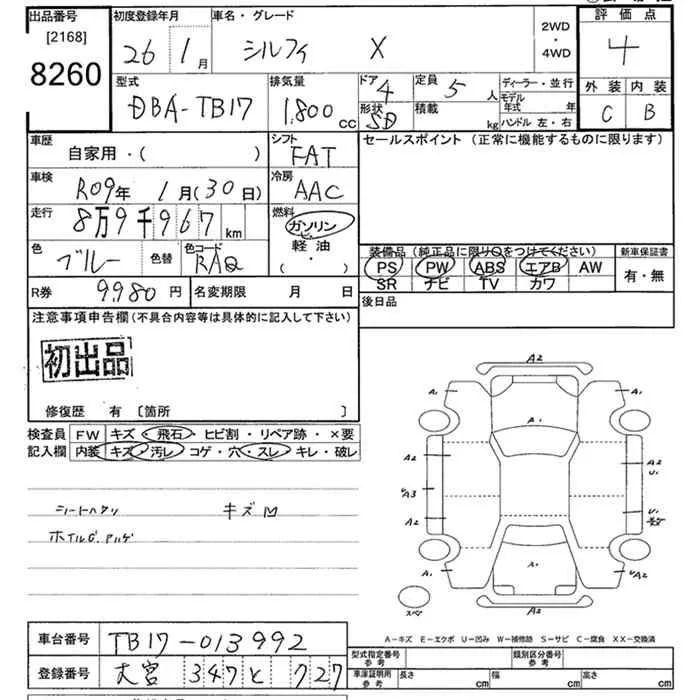 出品番号 初度登録年月 車名・グレード 2WD・4WD 評価点
[2168]
8260 26 1月 シルフィ X 4
型式 排気量 ドア 4 定員 5人 ディーラー・並行 外装 内装
DBA-TB17 1,800cc 形状 SD 積載 kg モデル年式 年 C B
ハンドル 左・右
車歴 自家用・( ) シフト FAT セールスポイント(正常に機能するものに限ります)
車検 R09年 1月(30日) 冷房 AAC
走行 8万9千967km 燃料 ガソリン
軽油
( ・ )
色 ブルー 色替 色コード RAQ
装備品(純正品に限り○をつけてください) 新車保証書
PS PW ABS エアB AW 有・無
SR ナビ TV カワ
R券 9,980円 名変期限 月 日 後日品
注意事項申告欄(不具合内容等は具体的に記入して下さい)
初出品
修復歴 有 [箇所 ]
検査員 FW キズ・飛石・ヒビ割・リペア跡・×要
記入欄 内装 キズ・汚レ・コゲ・穴・スレ・キレ・破レ
シートヘタリ キズ
A2
A1 A1
A1
A2 A2
U1
UA3
A2 U1
A1 A1 UA2
スペア
A2
A-キズ E-エクボ U-凹み W-補修跡 S-サビ C-腐食 XX-交換済
車台番号 TB17-013992 型式指定番号 参考 類別区分番号 参考
登録番号 大宮 347 と 727 車庫証明用 参考 長さ cm 幅 cm 高さ cm